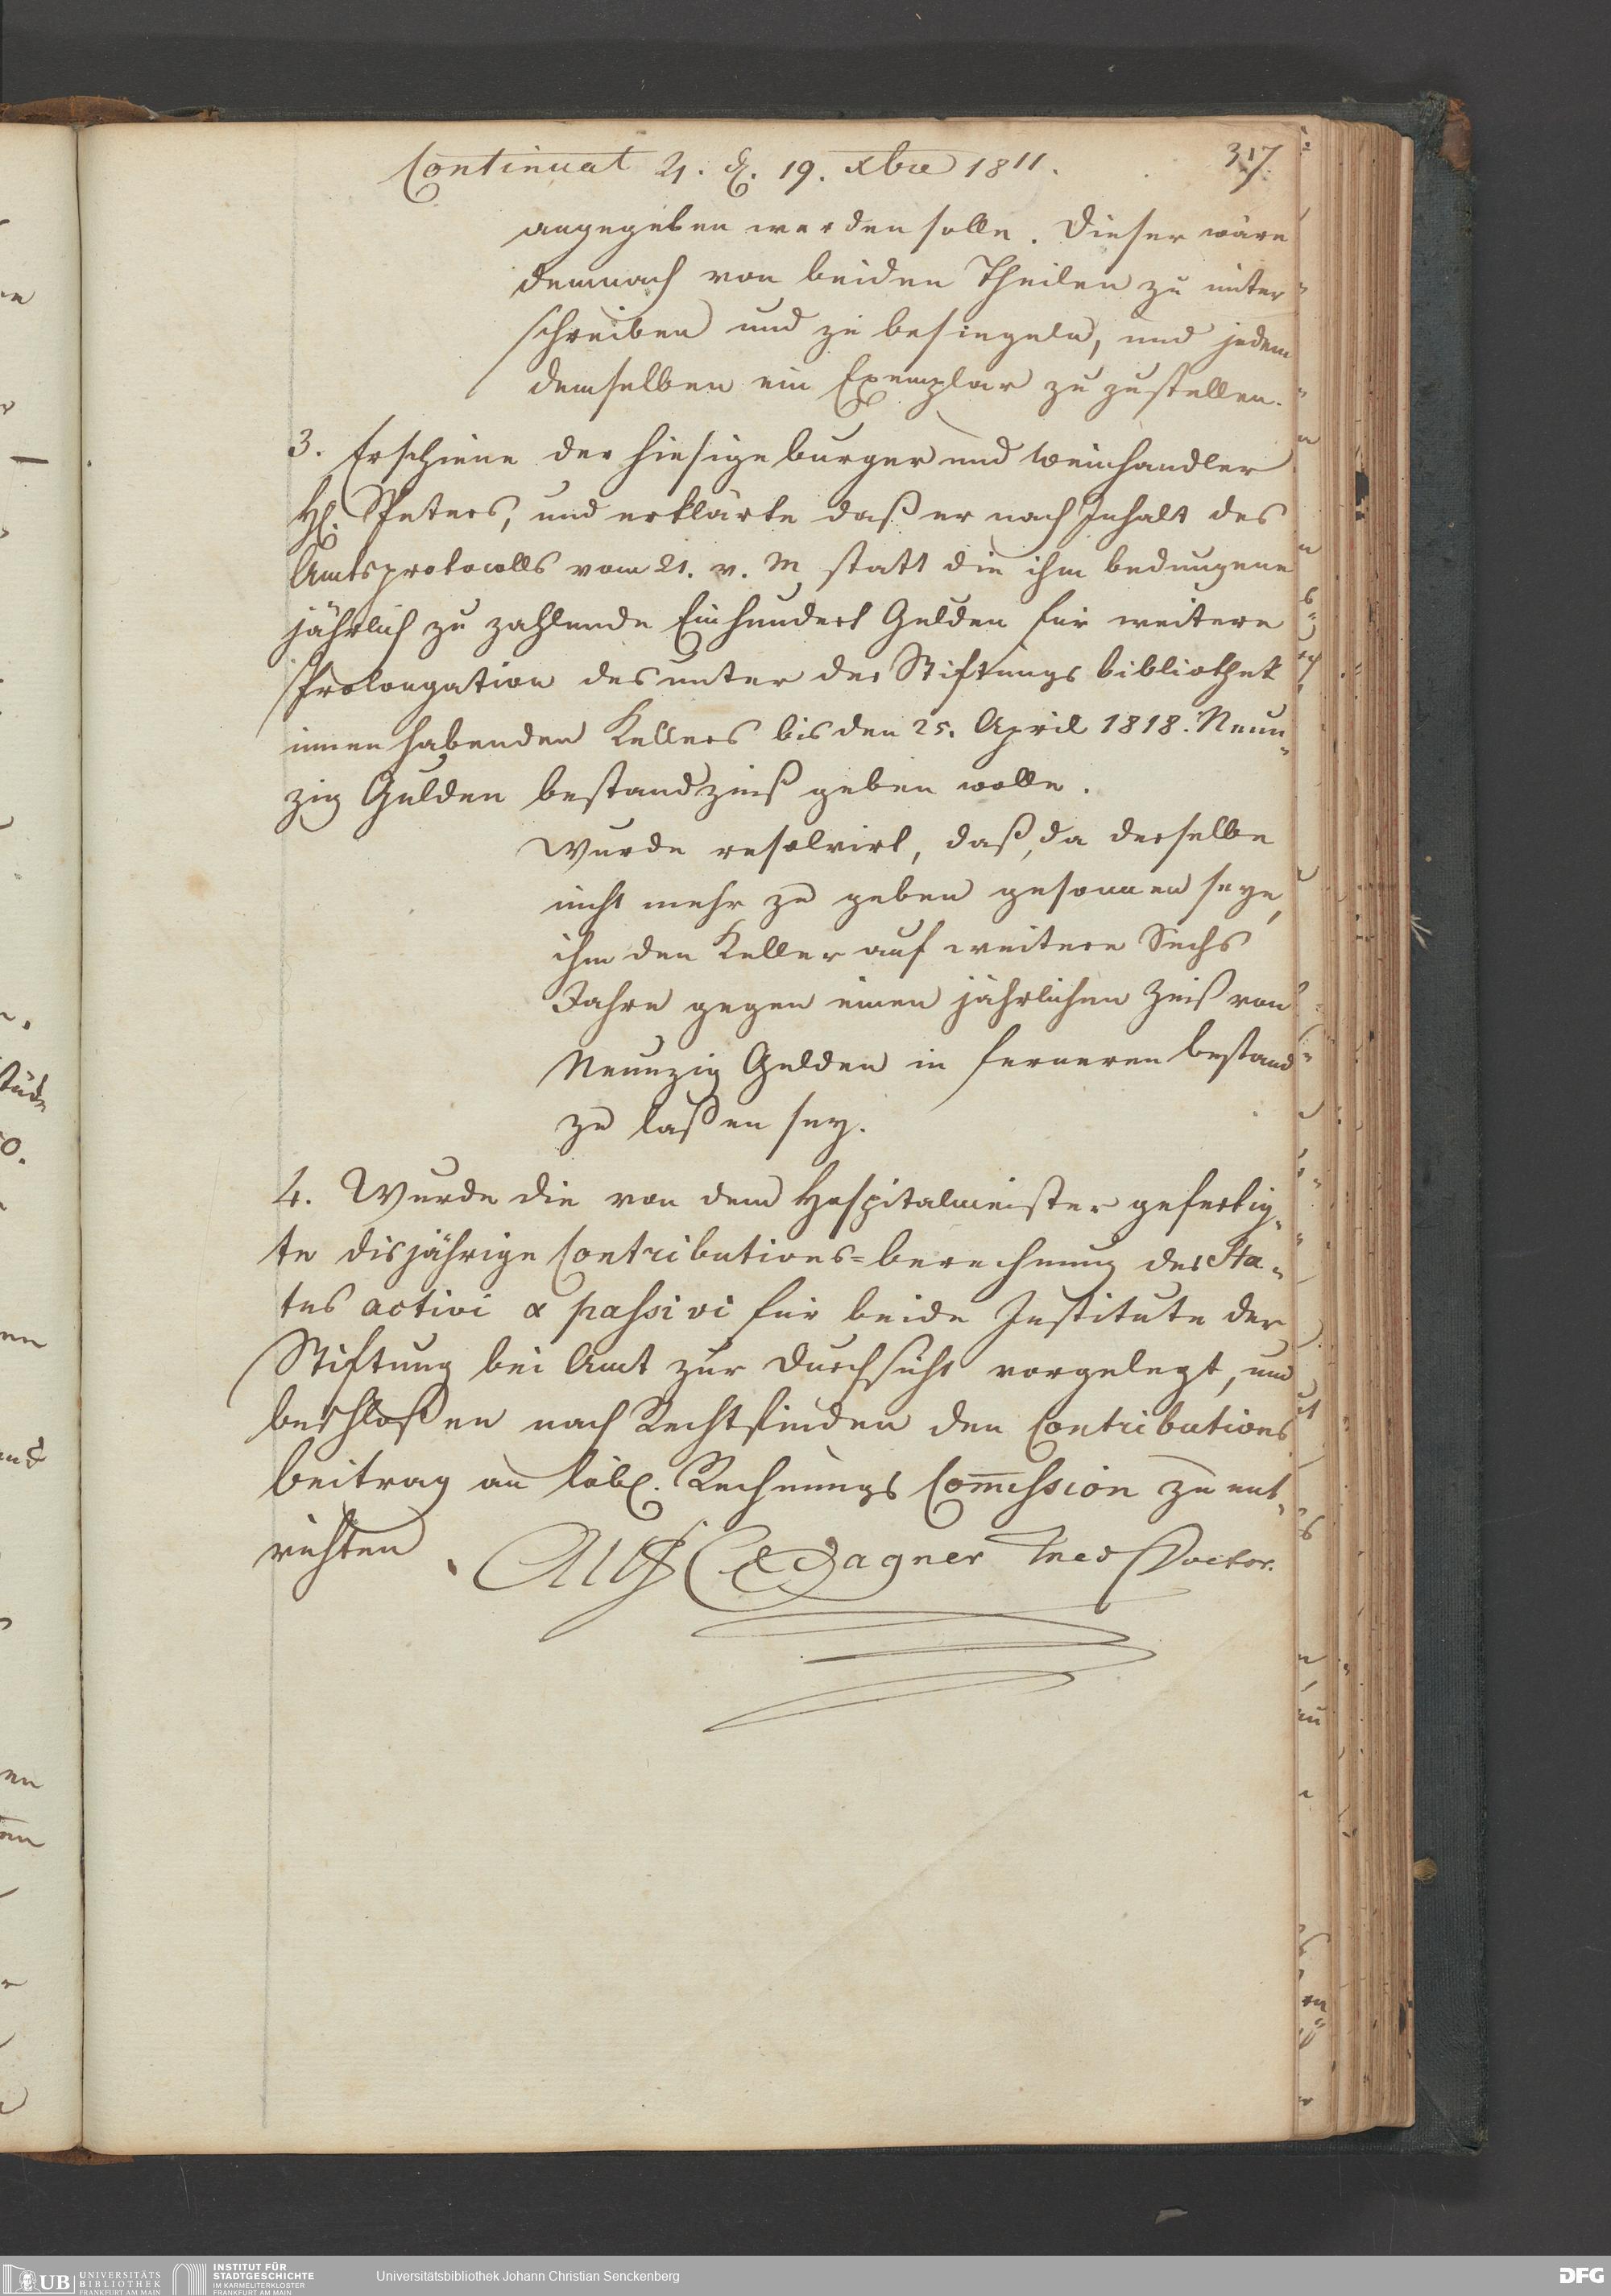 Continuat 4. d. 19. xbre 1811.
317.
angegeben werden solle. Dieser wäre
demnach von beiden Theilen zu unter
schreiben und zu besiegeln, und jedem
demselben ein Exemplar zu zustellen.
3. Erschiene der hiesige burger und Weinhandler
H. Peters, und erklärte daß er nach Inhalt des
Amtsprotocolls vom 21. v. M statt die ihm bedungene
jährlich zu zahlende Einhundert Gulden für weitere
Prolongation des unter der Stiftungs bibliothek
innen habenden Kellers bis den 25. April 1818. Neun„
zig Gulden bestandzinß geben wolle.
Wurde resolvirt, daß, da derselbe
nicht mehr zu geben gesonnen seye,
ihm den Keller auf weitere Sechs
Jahre gegen einen jährlichen Zinß von
Neunzig Gulden in ferneren bestand
zu laßen sey.
4. Wurde die von dem Hospitalmeister gefertig„
te disjährige Contributions=berechnung des Sta„
tus activi & passivi für beide Institute der
Stiftung bei Amt zur Durchsicht vorgelegt, und
beschloßen nach Rechtfinden den Contributions
beitrag an löbl. Rechnungs Com̄ission zu ent„
richten.
Wagner Med Doctor.
UB UNIVERSITÄTS
BIBLIOTHEK
FRANKFURT AM MAIN
INSTITUT FÜR
STADTGESCHICHTE
IM KARMELITERKLOSTER
FRANKFURT AM MAIN
Universitätsbibliothek Johann Christian Senckenberg
DFG